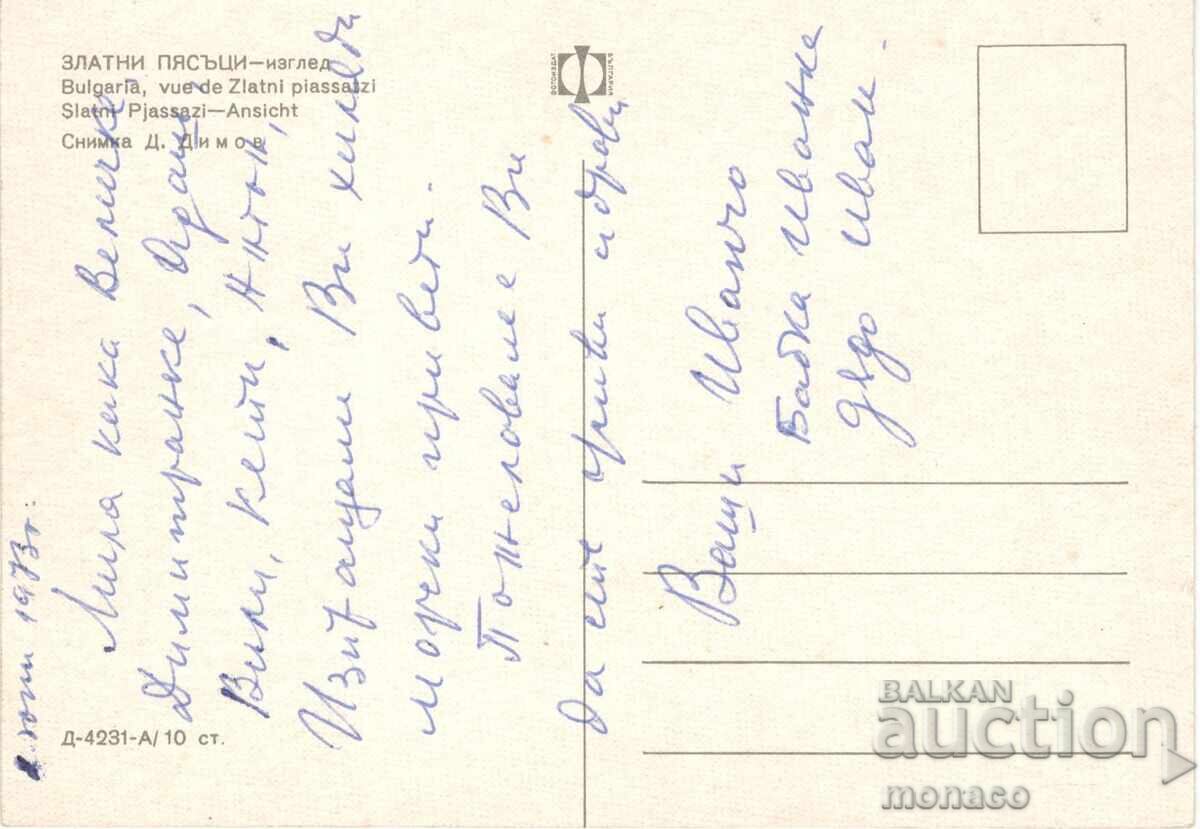 ЗЛАТНИ ПЯСЪЦИ—изглед
Bulgaria, vue de Zlatni piassatzi
Slatni Pjassazi—Ansicht
Снимка Д. Димов
ФОТОИЗДАТ
БЪЛГАРИЯ
юли 1973г.
Мила кака Величко
Димитранке,
Вили, Кети,
Изпращам Ви хиляди
морски привети.
Пожелавame Ви
да сте живи и здрави
Ваши Иванчо
Бабка Иванка
Дядо Иван.
Д-4231-А/10 ст.
BALKAN
auction
monaco